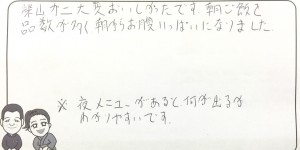 大変おいしかったです。朝ご飯も
品数が多く朝からお腹いっぱいになりました。
※ 夜メニューがあると何が出るか
わかりやすいです。